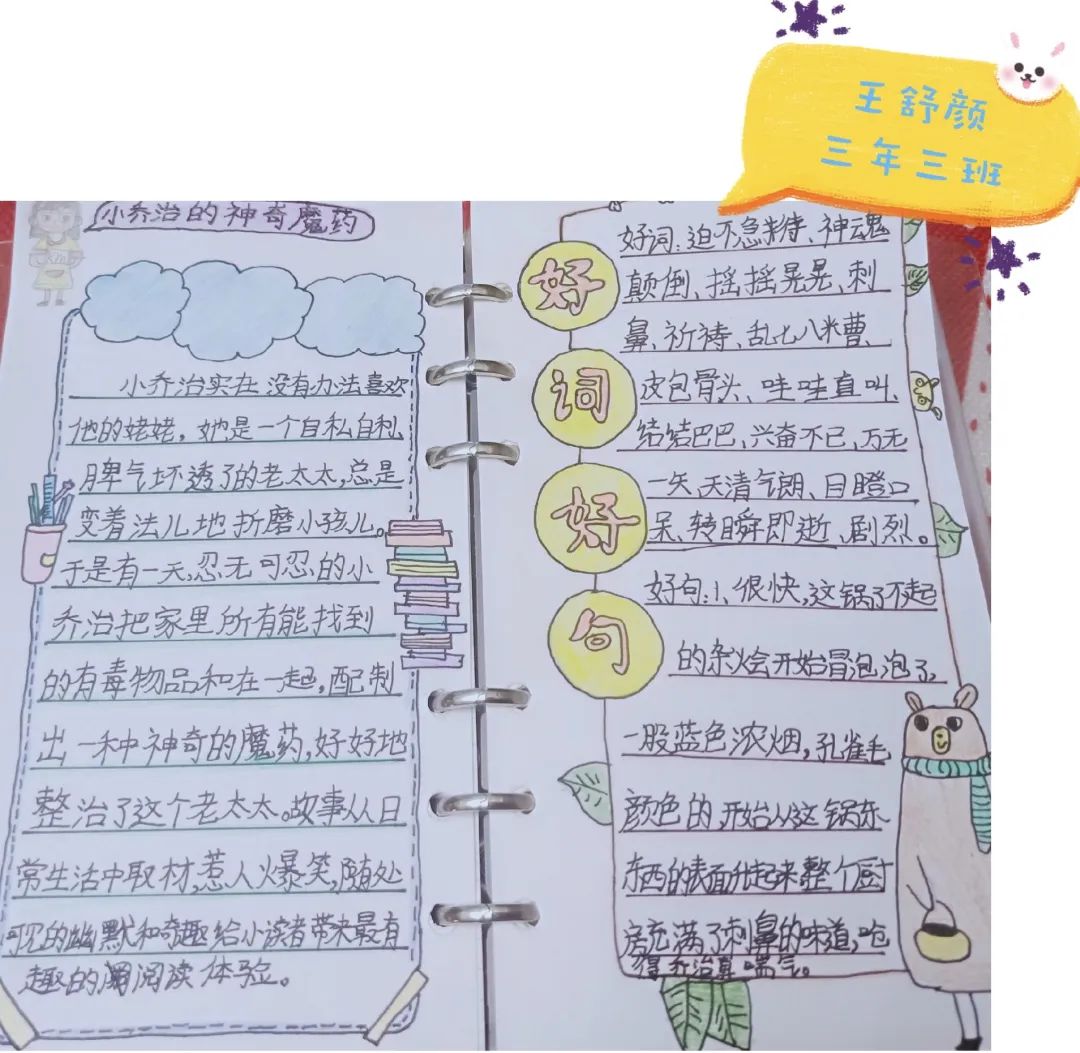 王舒颜
三年三班
小乔治的神奇魔药
小乔治实在没有办法喜欢
他的姥姥，她是一个自私自利，
脾气坏透了的老太太，总是
变着法儿地折磨小孩儿。
于是有一天，忍无可忍的小
乔治把家里所有能找到
的有毒物品和在一起，配制
出一种神奇的魔药，好好地
整治了这个老太太。故事从日
常生活中取材，惹人火爆笑，随处
可见的幽默和奇趣给小读者带来最有
趣的阅读体验。
好词好句
好词：迫不急待、神魂
颠倒、摇摇晃晃、刺
鼻、祈祷、乱七八糟、
皮包骨头、哇哇直叫、
结结巴巴、兴奋不已、万无
一失、天清气朗、目瞪口
呆、转瞬即逝、剧烈。
好句：1、很快，这锅了不起
的杂烩开始冒泡泡了，
一股蓝色浓烟，孔雀毛
颜色的，开始从这锅东
东西的表面升起来整个厨
房充满了刺鼻的味道，呛
得乔治直喘气。